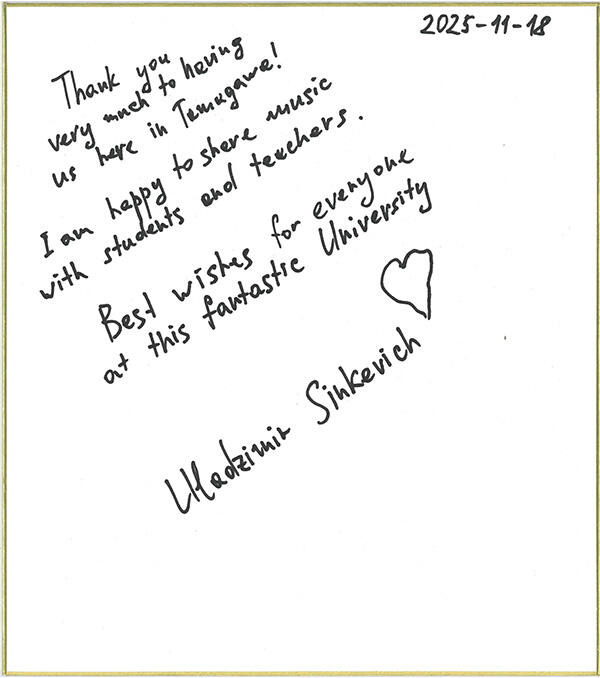 2025-11-18
Thank you
very much to having
us here in Tamagawa!
I am happy to share music
with students and teachers.
Best wishes for everyone
at this fantastic University
Uladzimir Sinkevich